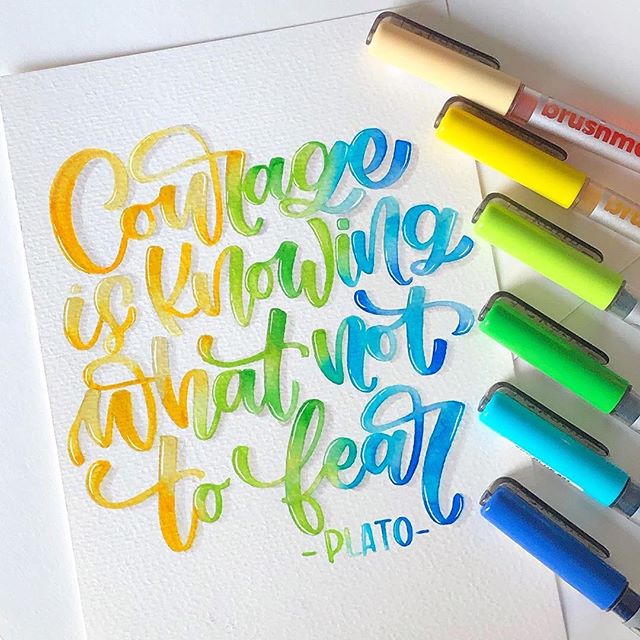 Courage
is knowing
what not
to fear
-PLATO-
brushm
bru